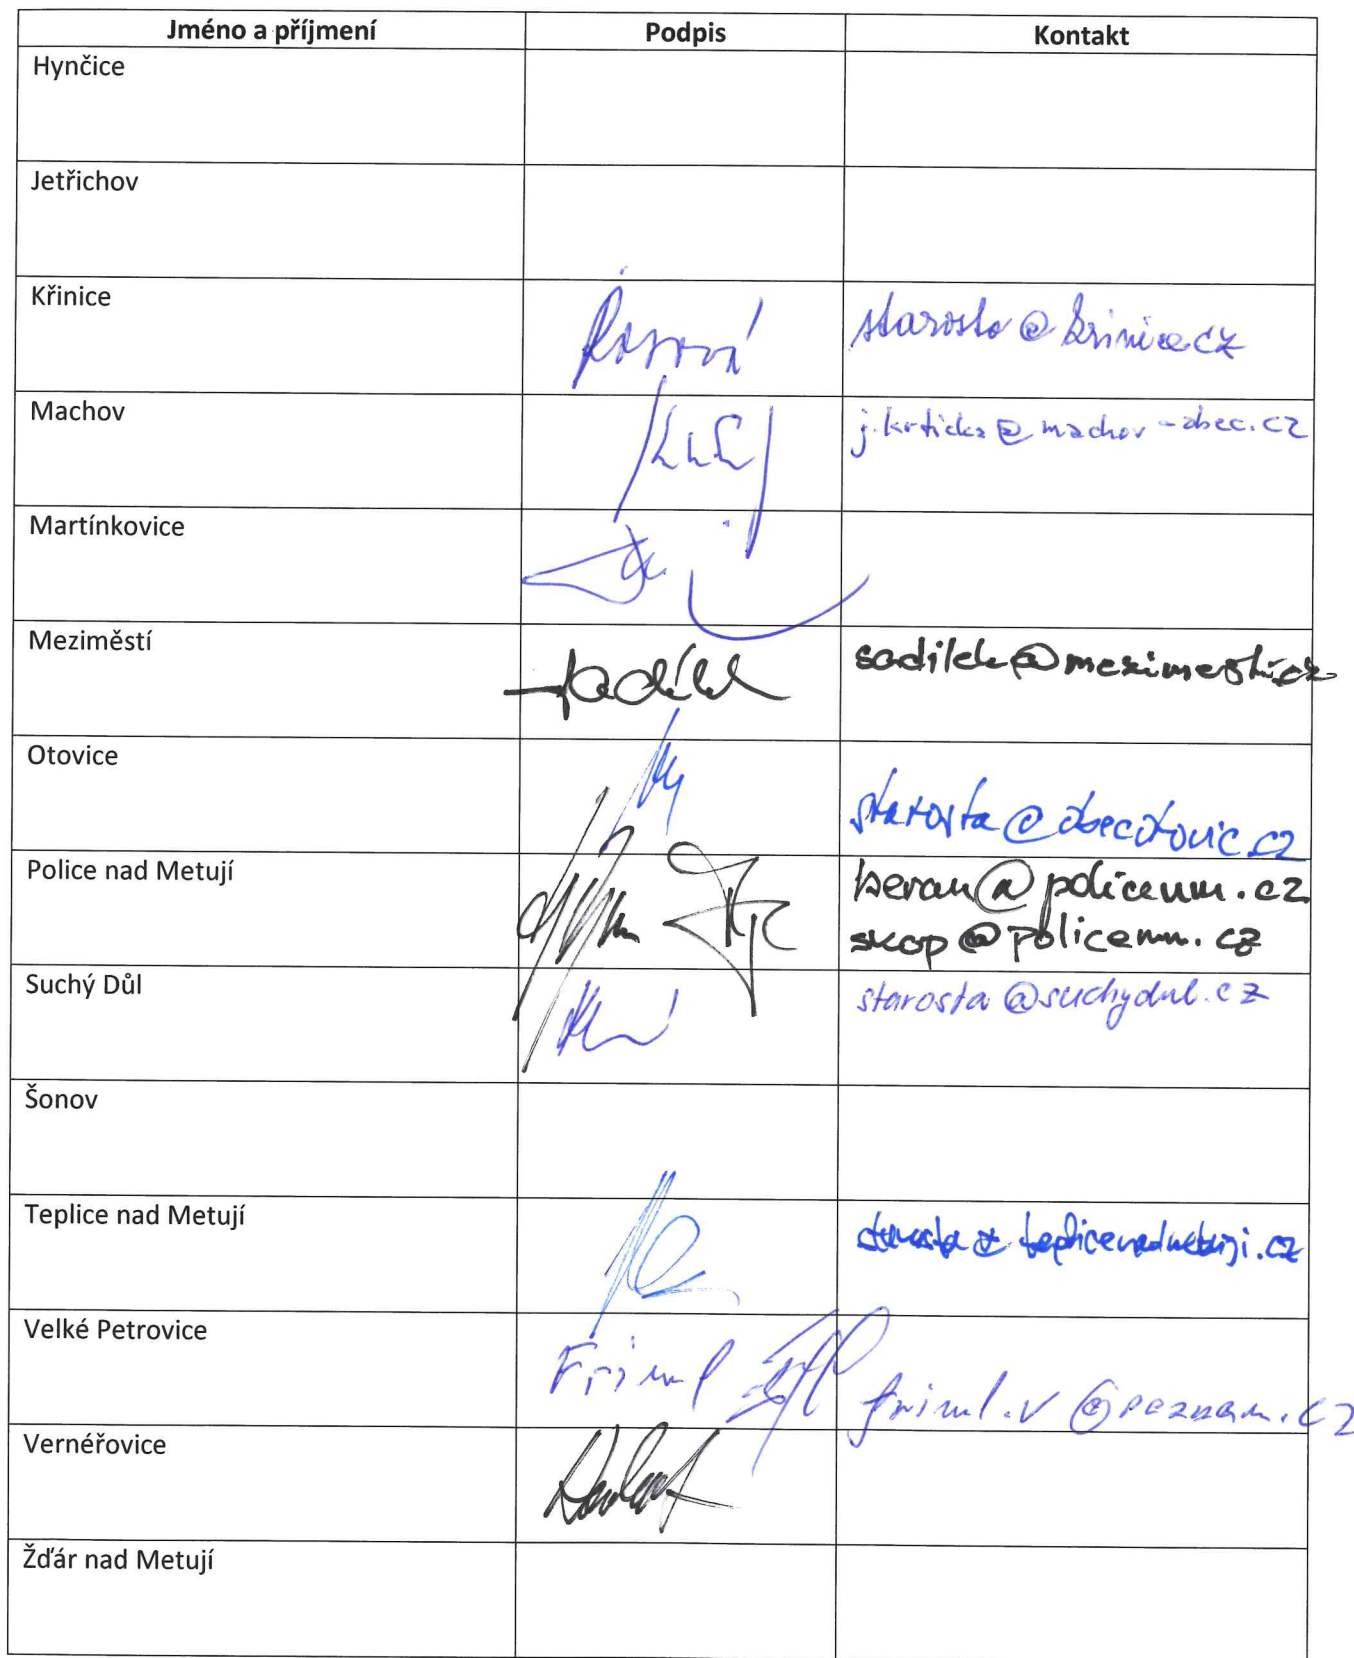 Jméno a příjmení Podpis Kontakt
Hynčice
Jetřichov
Křinice starosta@krinice.cz
Machov j.krticka@machov-obec.cz
Martínkovice
Meziměstí sadilek@mezimesti.cz
Otovice starosta@obecotovic.cz
Police nad Metují beran@policenm.cz
skop@policenm.cz
Suchý Důl starosta@suchydul.cz
Šonov
Teplice nad Metují starosta@teplicenadmetuji.cz
Velké Petrovice Friml friml.v@seznam.cz
Vernéřovice
Žďár nad Metují